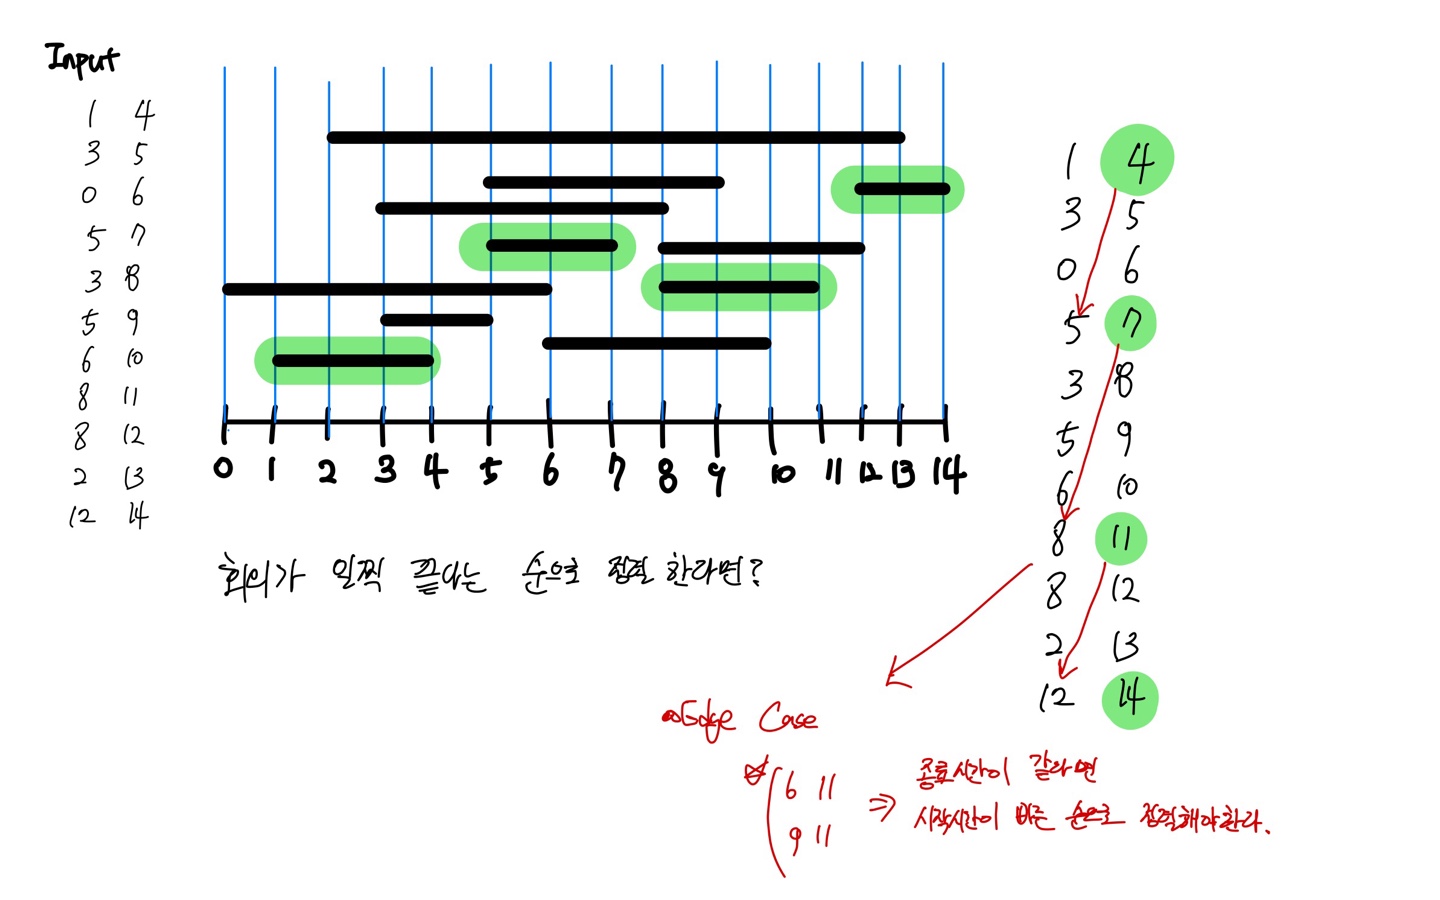 Input
1 4
3 5
0 6
5 7
3 8
5 9
6 10
8 11
8 12
2 13
12 14
0 1 2 3 4 5 6 7 8 9 10 11 12 13 14
회의가 일찍 끝나는 순으로 정렬 한다면?
1 4
3 5
0 6
5 7
3 8
5 9
6 10
8 11
8 12
2 13
12 14
Edge Case
6 11
9 11
⇒ 종료시간이 같다면
시작시간이 빠른 순으로 정렬해야한다.